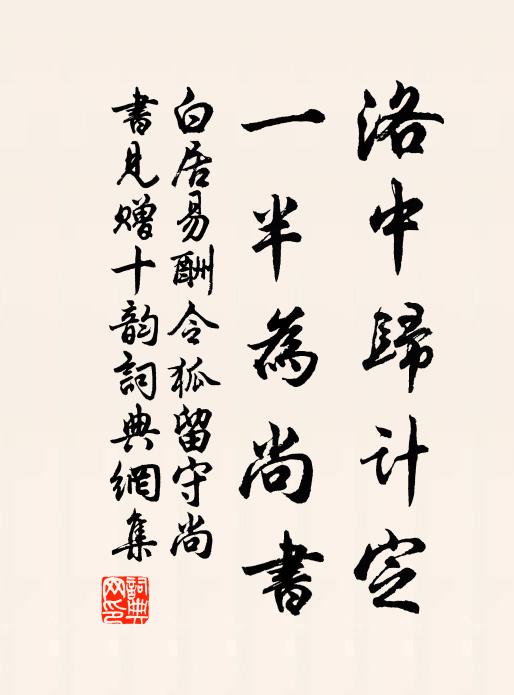 洛中歸計定
一半為尚書
白居易酬令狐留守尚
書見贈十韵詞典網集
詞典網印